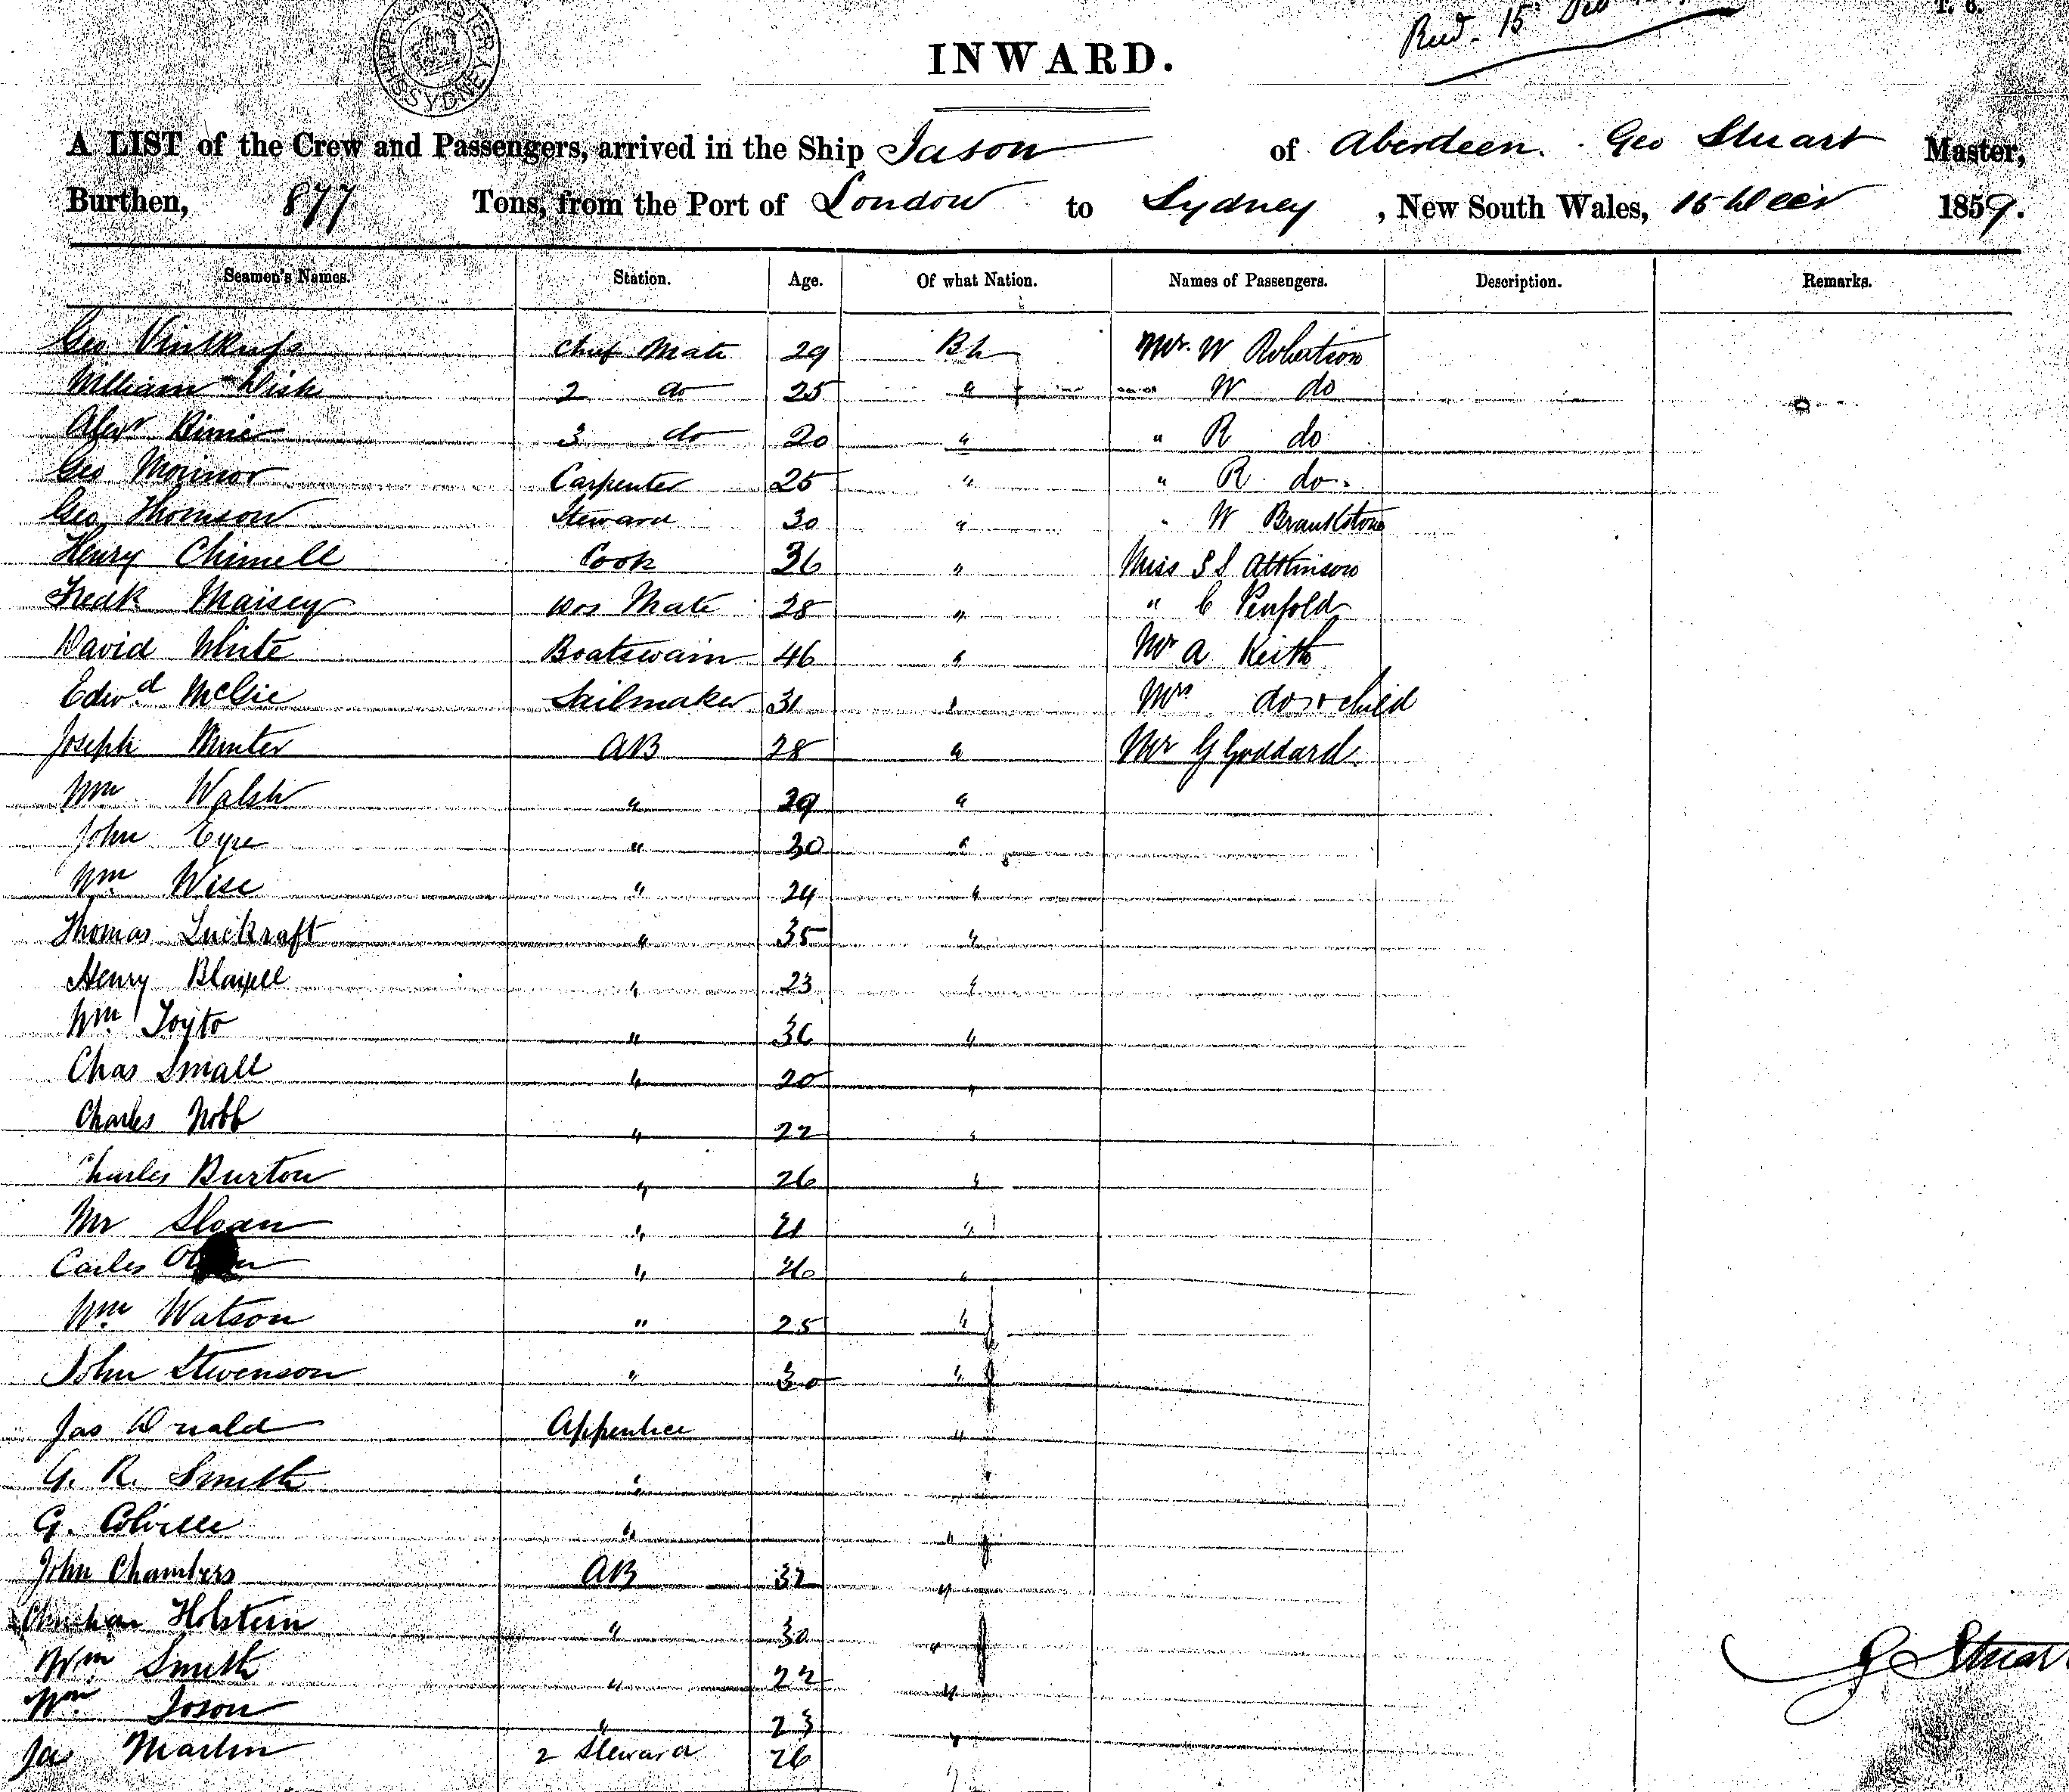 SHIPPING MASTER SYDNEY
Recd. 15 Dec
INWARD.
A LIST of the Crew and Passengers, arrived in the Ship Jason of Aberdeen. Geo Stuart Master,
Burthen, 877 Tons, from the Port of London to Sydney, New South Wales, 15 1859.
Seamen's Names. Station. Age. Of what Nation. Names of Passengers. Description. Remarks.
Geo Chief Mate 29 Bh Mr. W Robertson
William 2 do 25 " W do
Alexr 3 do 20 " " R do
Geo Carpenter 25 " " R. do.
Geo Thomson Steward 30 " " W
Henry Chimell Cook 36 " Miss S S Attkinson
Fredk Maisey Mate 28 " " C Penfold
David White Boatswain 46 " Mr A Keith
Edwd McGie Sailmaker 31 " Mrs do + child
Joseph Winter AB 28 " Mr G Goddard
Wm Walsh " 29 "
John Eyre " 30 "
Wm Wise " 24 "
Thomas Luckraft " 35 "
Henry " 23 "
Wm " 36 "
Chas Small " 20 "
Charles Nobb " 22 "
Charles Burton " 26 "
Sloan " 21 "
Carles " 26 "
Wm Watson " 25 "
John Stevenson " 30 "
Jas Apprentice "
G. R. Smith " "
G. Colville " "
John Chambers AB 32 "
Holstern " 30 "
Wm Smith " 22 "
Wm " 23 "
Ja Martin 2 Steward 26
G Stuart